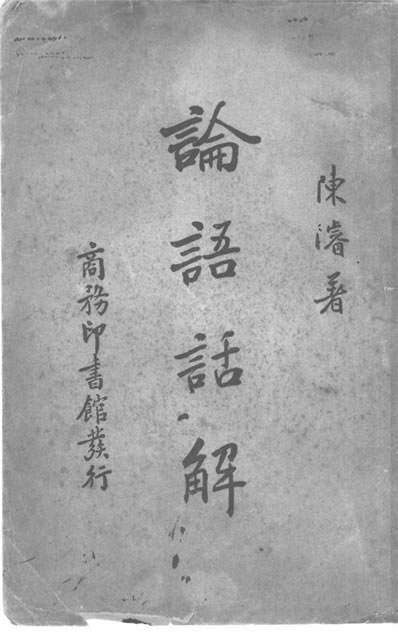 陳濬著
論語話解
商務印書館發行